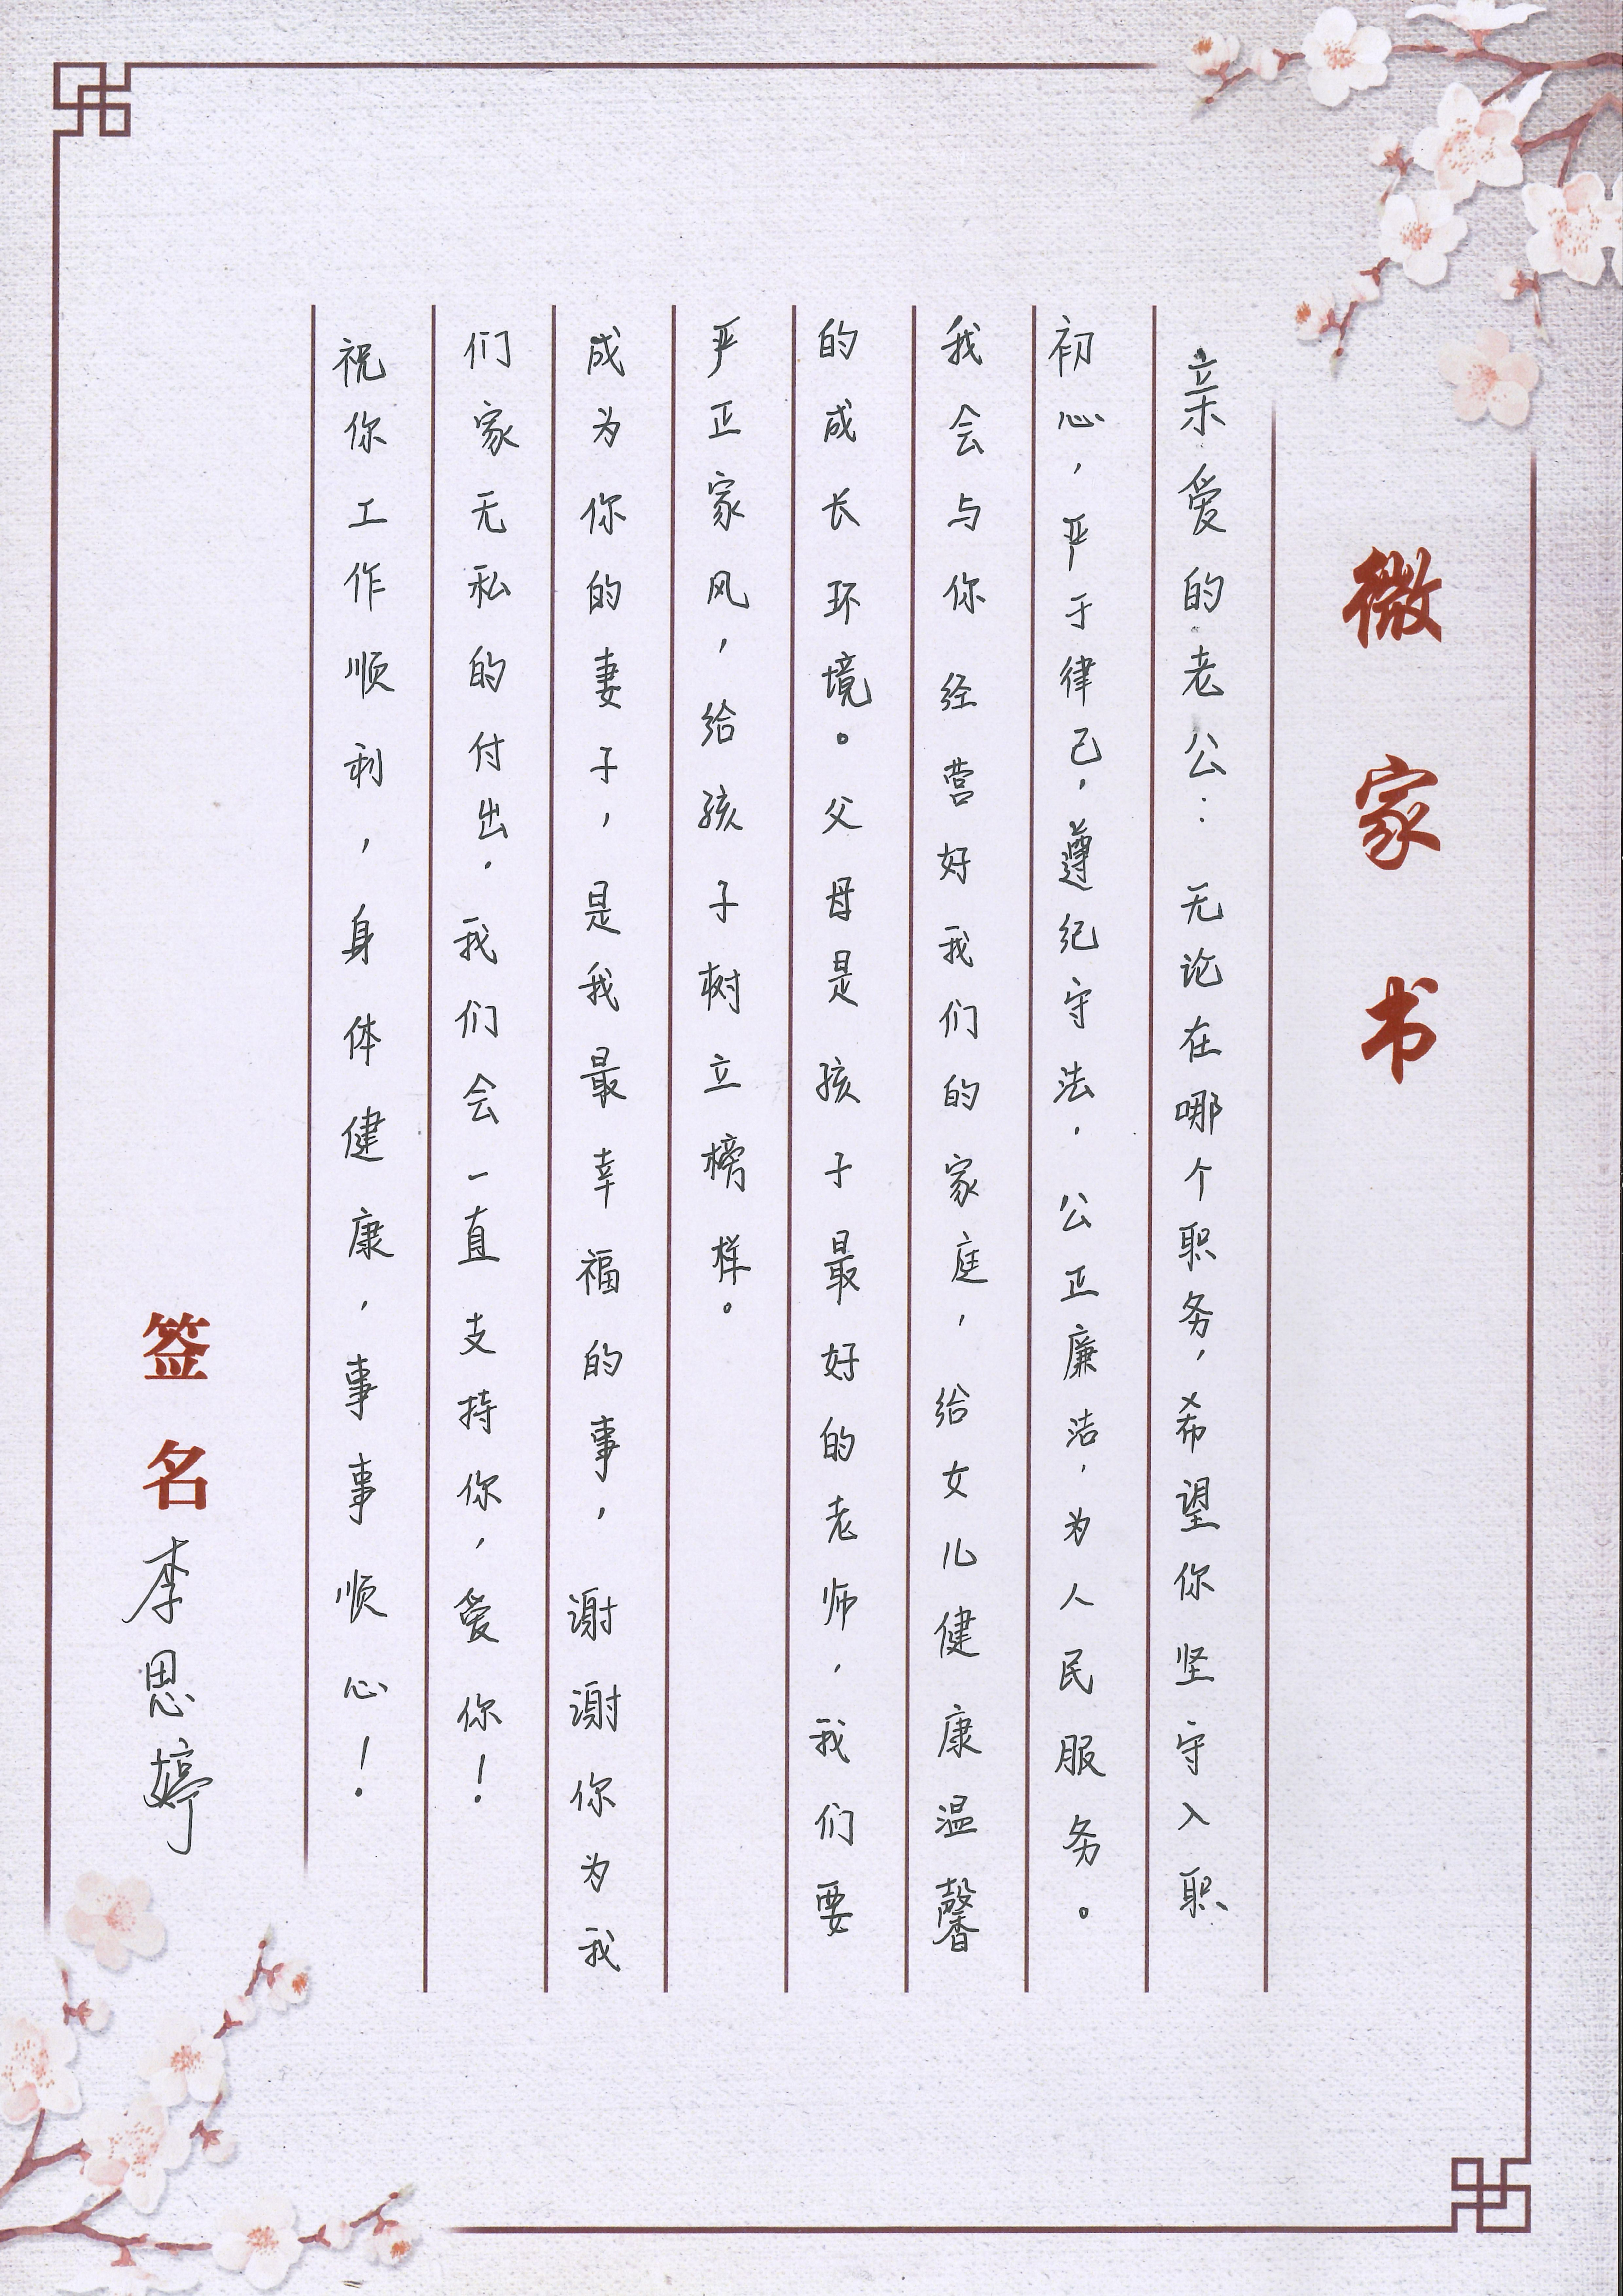 微家书
亲爱的老公：无论在哪个职务，希望你坚守入职
初心，严于律己，遵纪守法，公正廉洁，为人民服务。
我会与你经营好我们的家庭，给女儿健康温馨
的成长环境。父母是孩子最好的老师，我们要
严正家风，给孩子树立榜样。
成为你的妻子，是我最幸福的事，谢谢你为我
们家无私的付出，我们会一直支持你，爱你！
祝你工作顺利，身体健康，事事顺心！
签名李思婷